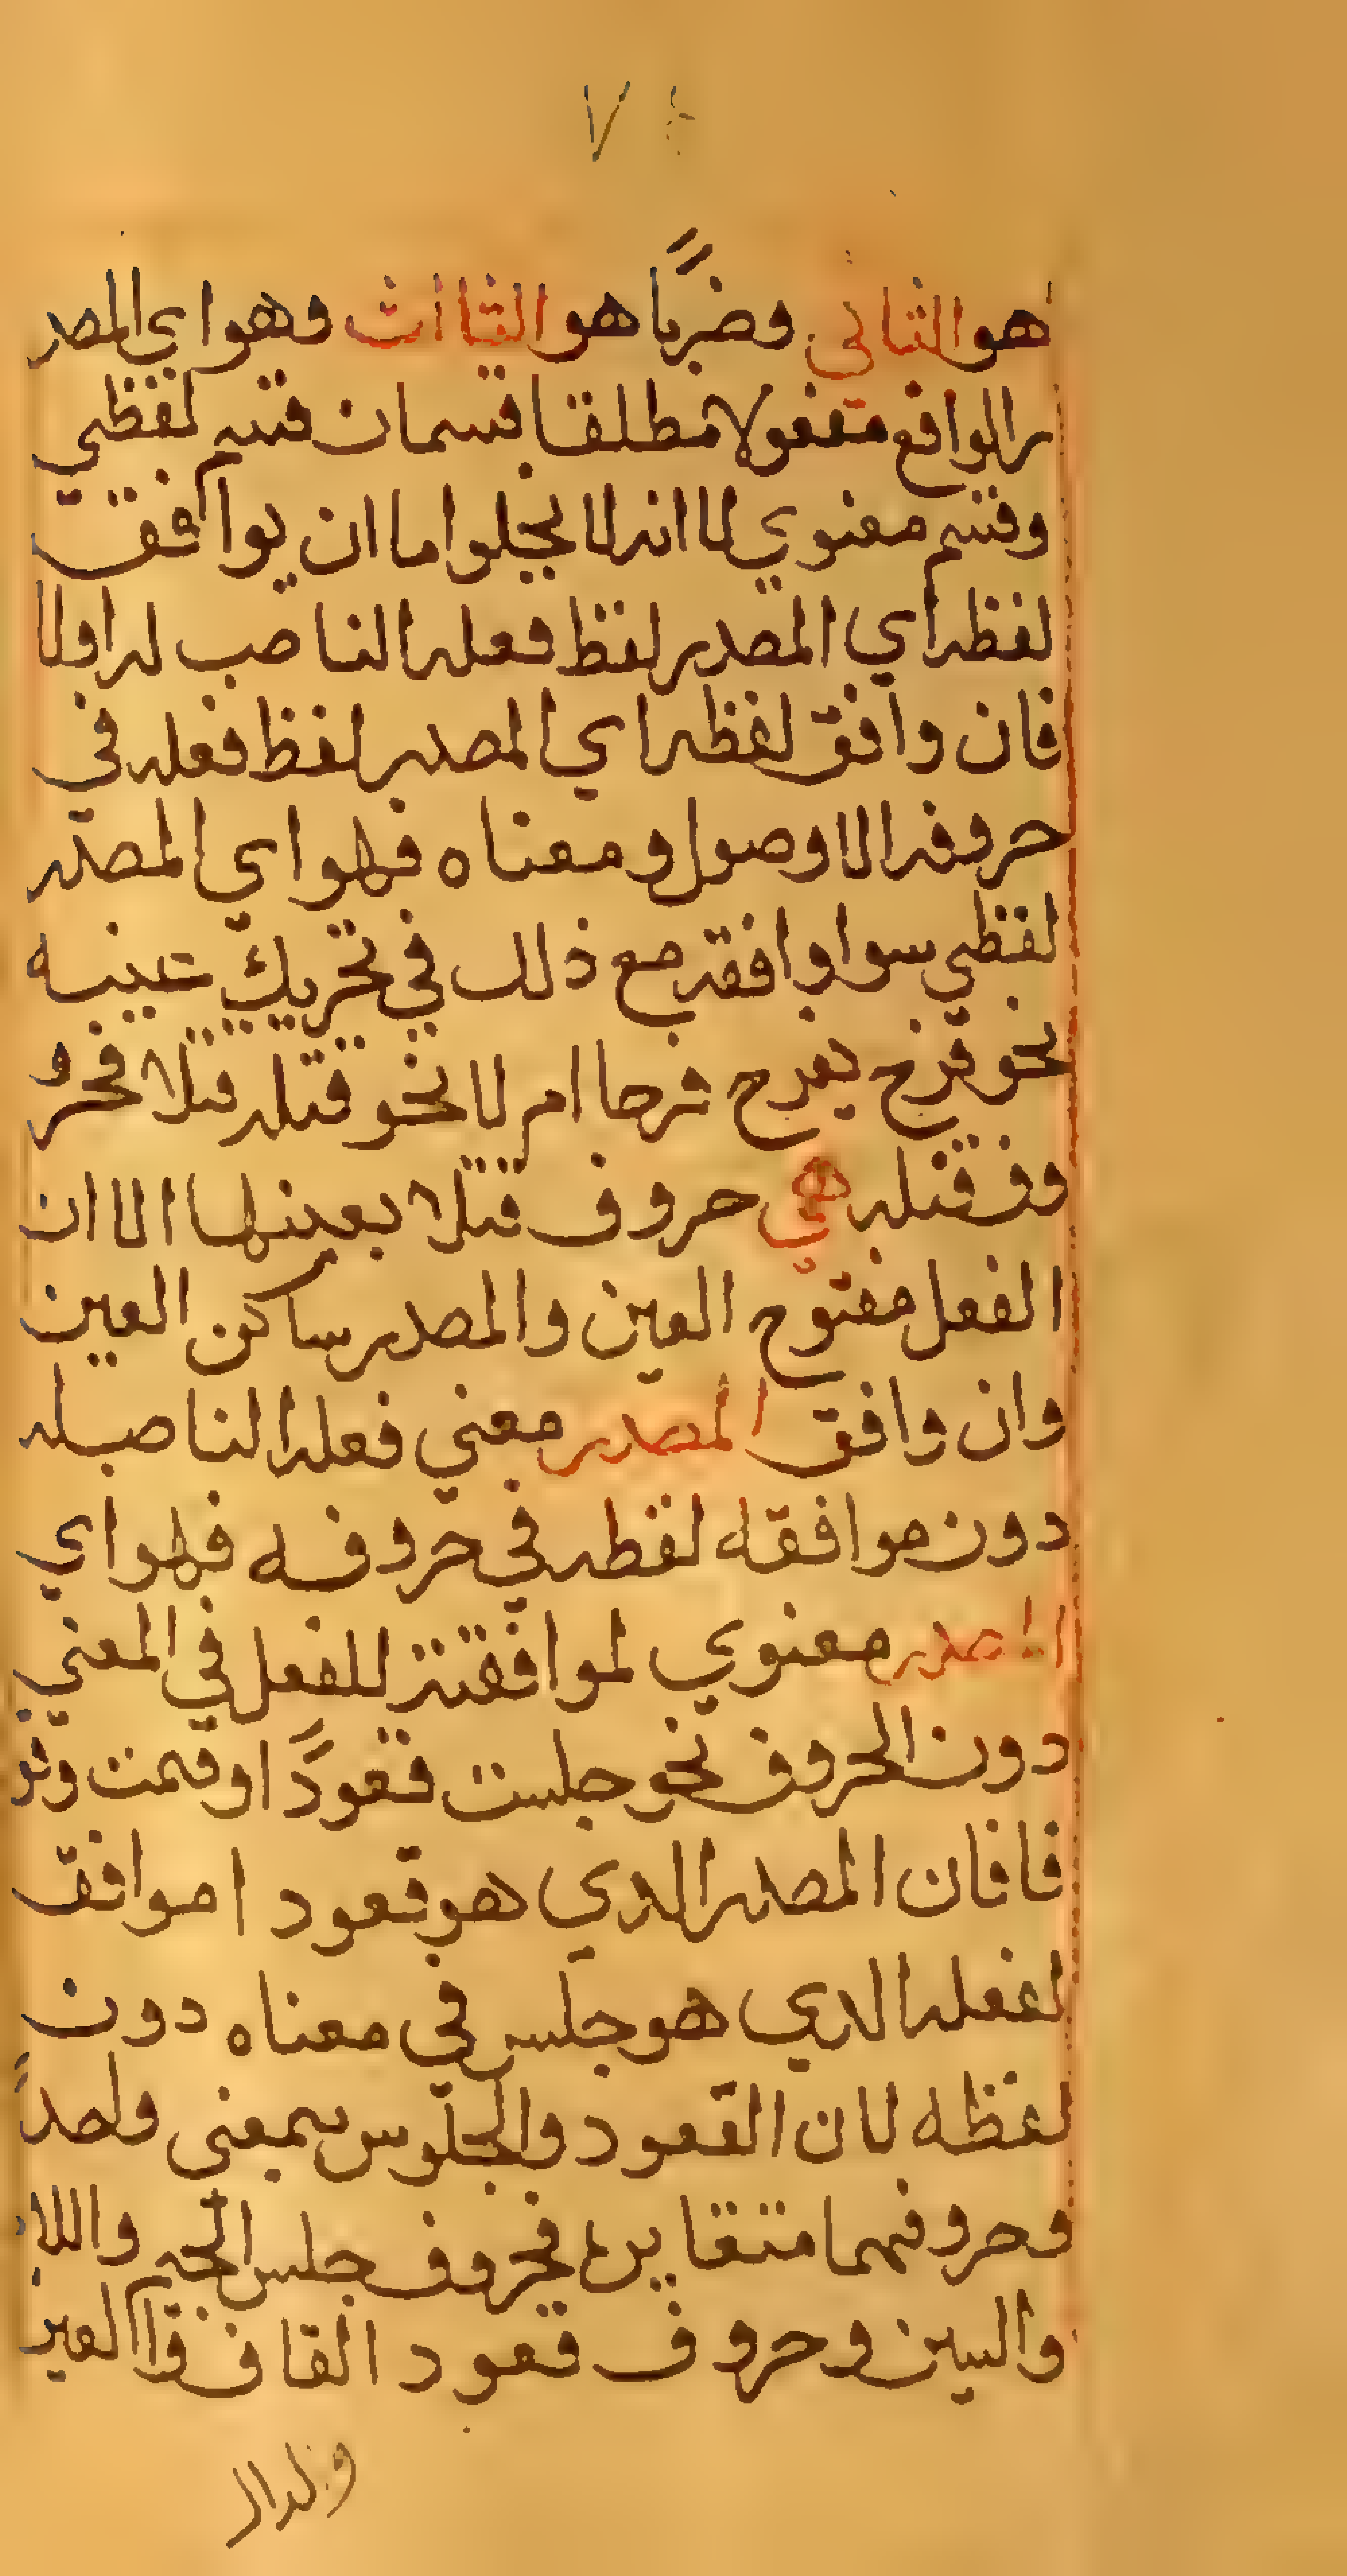 هو الثاني وضربًا هو الثاالث وهو اي المصد
ر الواقع مفعولا مطلقا قسمان قسم لفظي
وقسم معنوي لاانه لا يخلوا ماان يوافق
لفظه اي المصدر لفظ فعله الناصب له اولا
فان وافق لفظه اي المصدر لفظ فعله في
حروفه الاوصول ومعناه فهو اي المصدر
لفظي سوا وافقه مع ذلك في تحريك عينه
نحو فرح يفرح فرحا ام لا نحو قتله قتلا فحر
وف قتله هي حروف قتلا بعينها الا ان
الفعل مفتوح العين والمصدر ساكن العين
وان وافق المصدر معني فعله الناصب له
دون موافقه لفظه في حروفه فهو اي
المصدر معنوي لموافقته للفعل في المعني
دون الحروف نحو جلست قعودًا او قمت وقو
فا فان المصدر الدي هو قعود ا موافق
لفعله الدي هو جلس في معناه دون
لفظه لان القعود والجلوس بمعنى واحدً
وحروفهما متقايره فحروف جلس الجيم واللا
والسين وحروف قعود القاف واالعين
ولدال